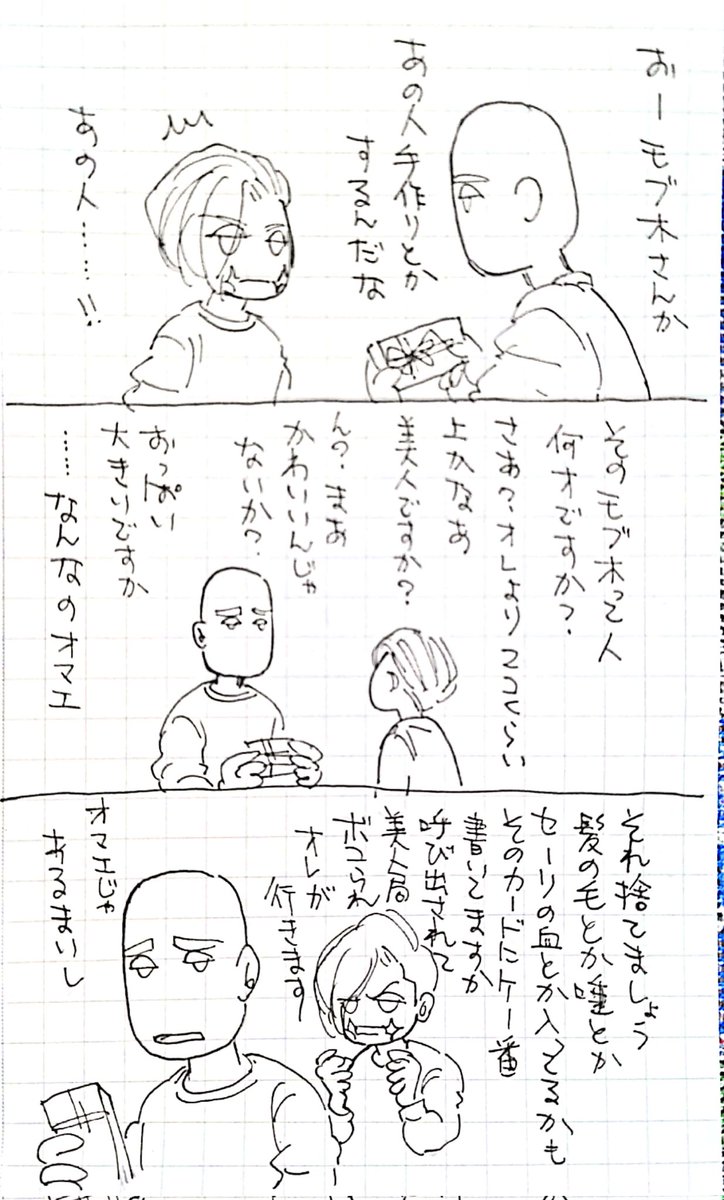 おーモブ木さんか
あの人手作りとか
するんだな
あの人……!!
そのモブ木って人
何才ですか?
さあ?オレより2コくらい
上かなあ
美人ですか?
ん?まあ
かわいいんじゃ
ないか?
おっぱい
大きいですか
……なんなのオマエ
それ捨てましょう
髪の毛とか唾とか
セーリの血とか入ってるかも
そのカードにケー番
書いてますか
呼び出されて
美人局
ボコられ
オレが
行きます
オマエじゃ
あるまいし